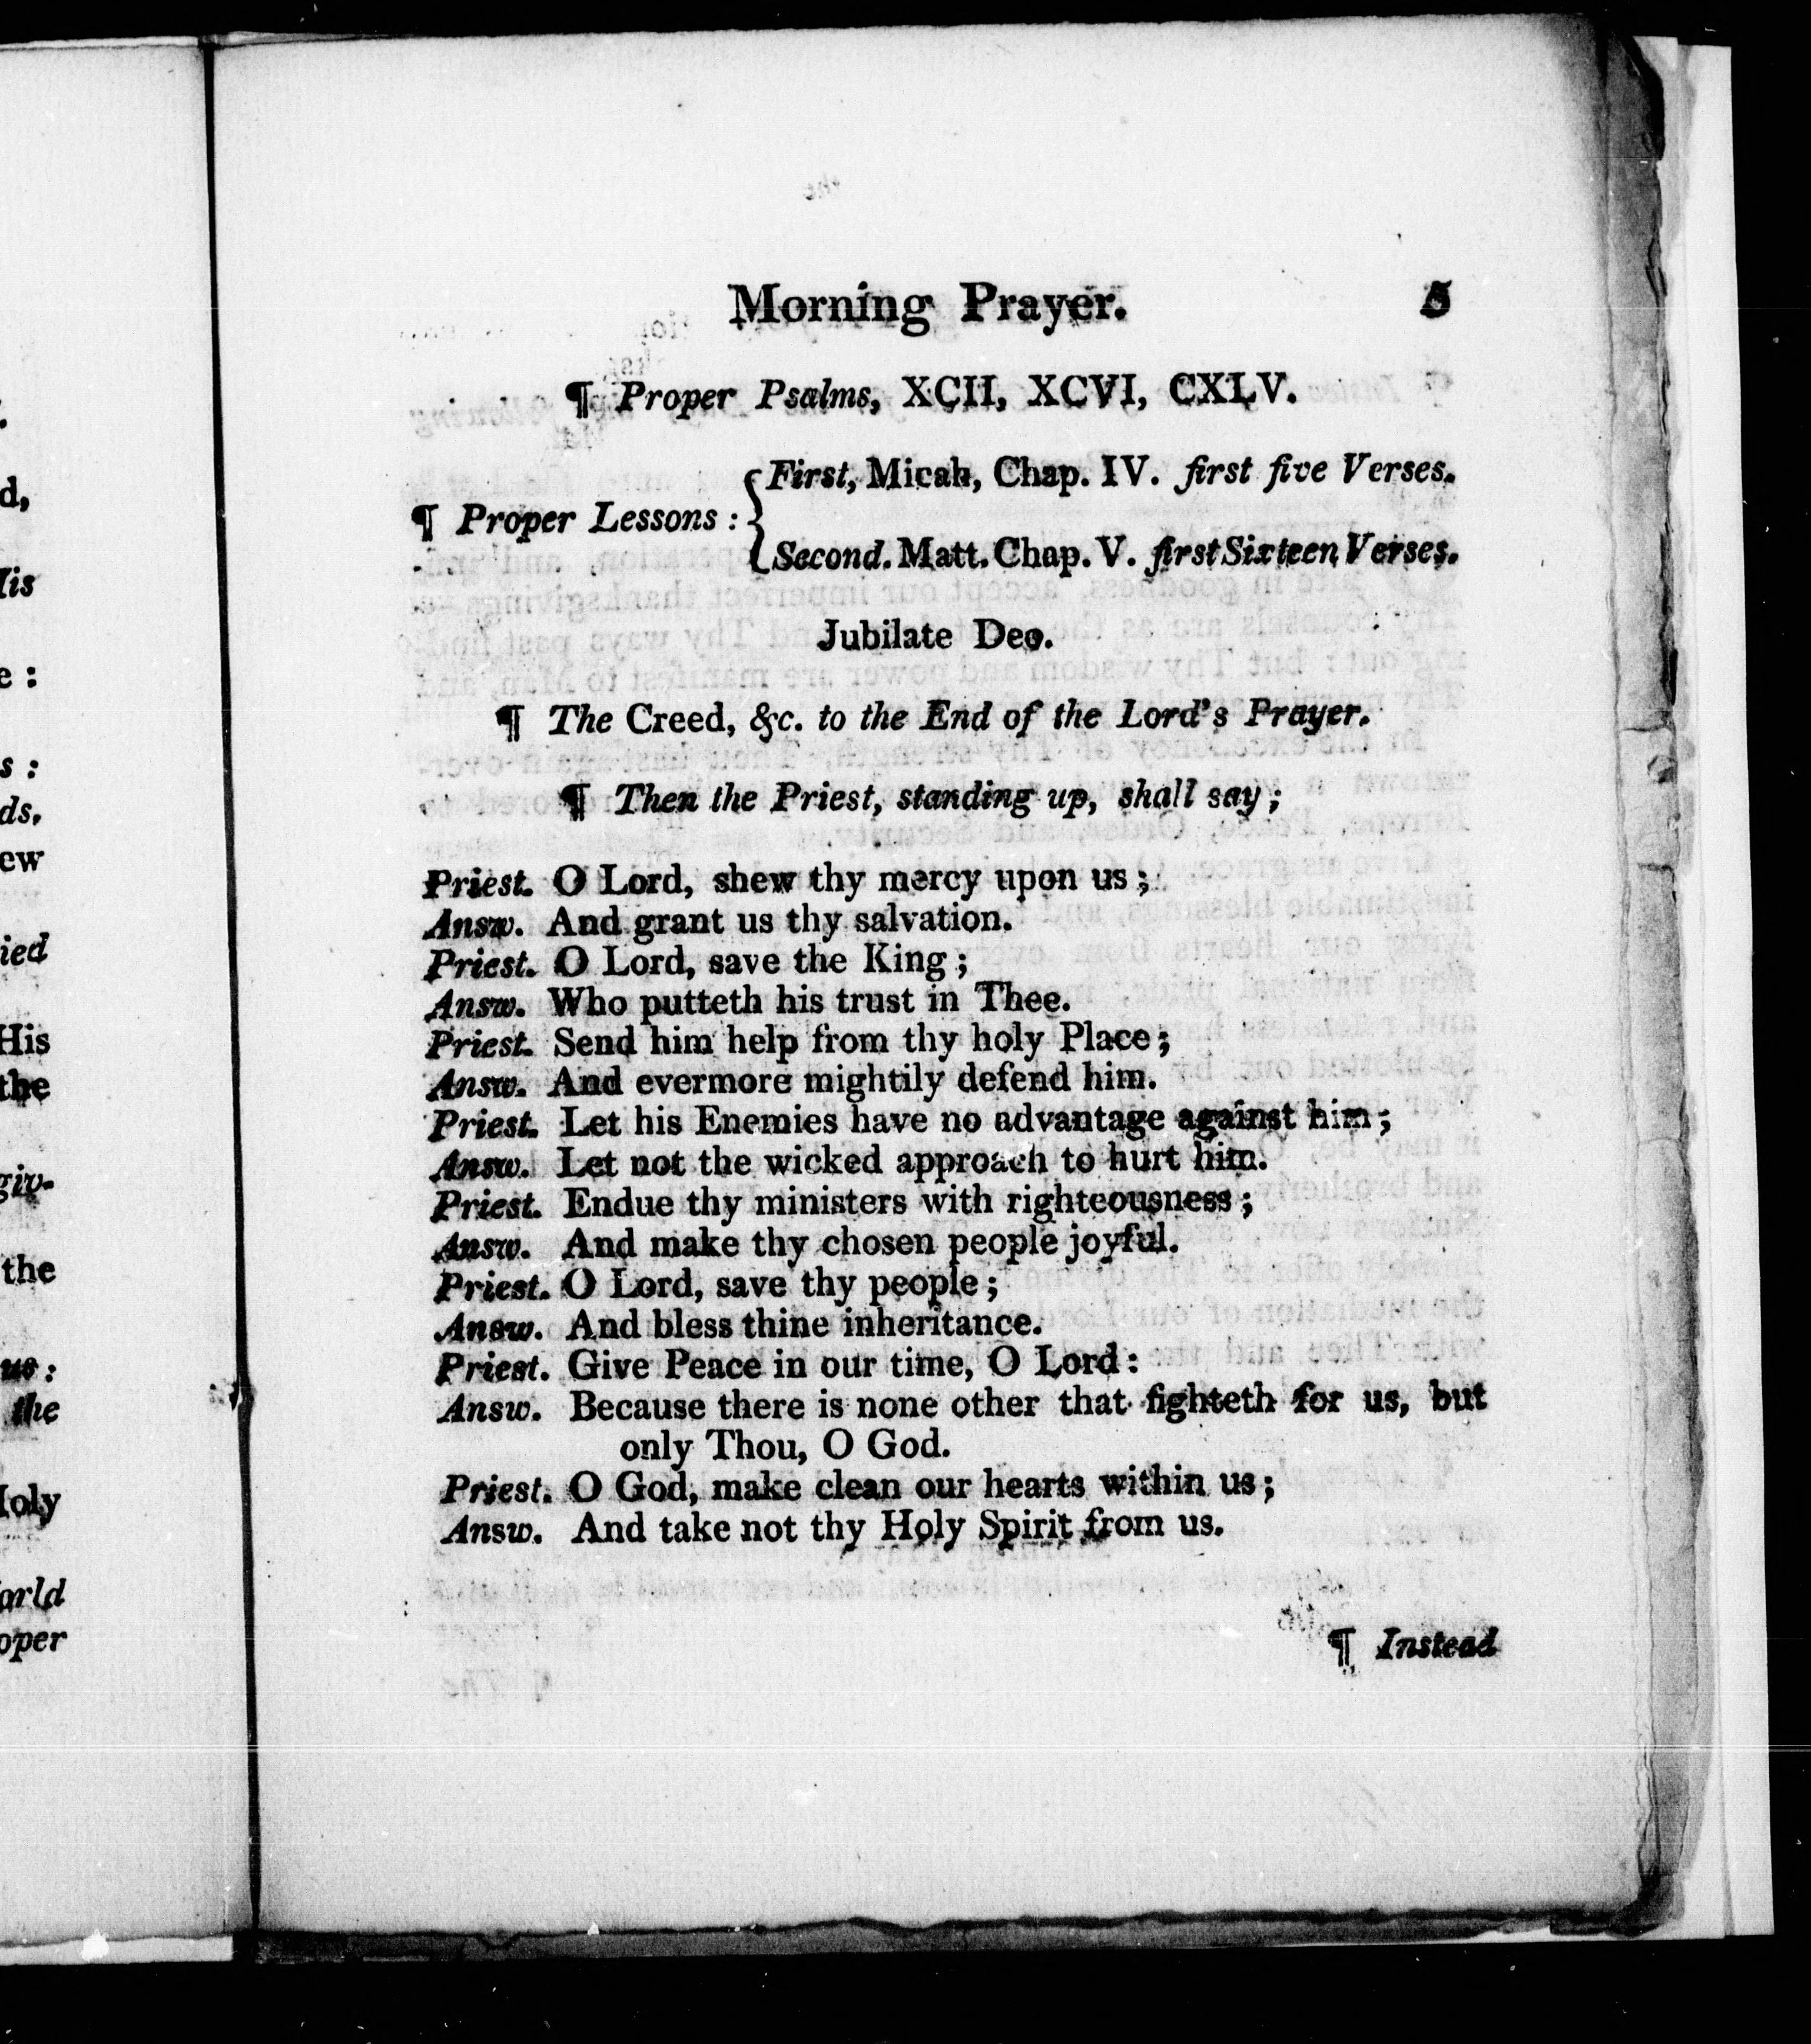 Morning Prayer. 5
¶ Proper Psalms, XCII, XCVI, CXLV.
¶ Proper Lessons: { First, Micah, Chap. IV. first five Verses.
Second. Matt. Chap. V. first Sixteen Verses.
Jubilate Deo.
¶ The Creed, &c. to the End of the Lord's Prayer.
¶ Then the Priest, standing up, shall say;
Priest. O Lord, shew thy mercy upon us;
Answ. And grant us thy salvation.
Priest. O Lord, save the King;
Answ. Who putteth his trust in Thee.
Priest. Send him help from thy holy Place;
Answ. And evermore mightily defend him.
Priest. Let his Enemies have no advantage against him;
Answ. Let not the wicked approach to hurt him.
Priest. Endue thy ministers with righteousness;
Answ. And make thy chosen people joyful.
Priest. O Lord, save thy people;
Answ. And bless thine inheritance.
Priest. Give Peace in our time, O Lord:
Answ. Because there is none other that fighteth for us, but
only Thou, O God.
Priest. O God, make clean our hearts within us;
Answ. And take not thy Holy Spirit from us.
¶ Instead